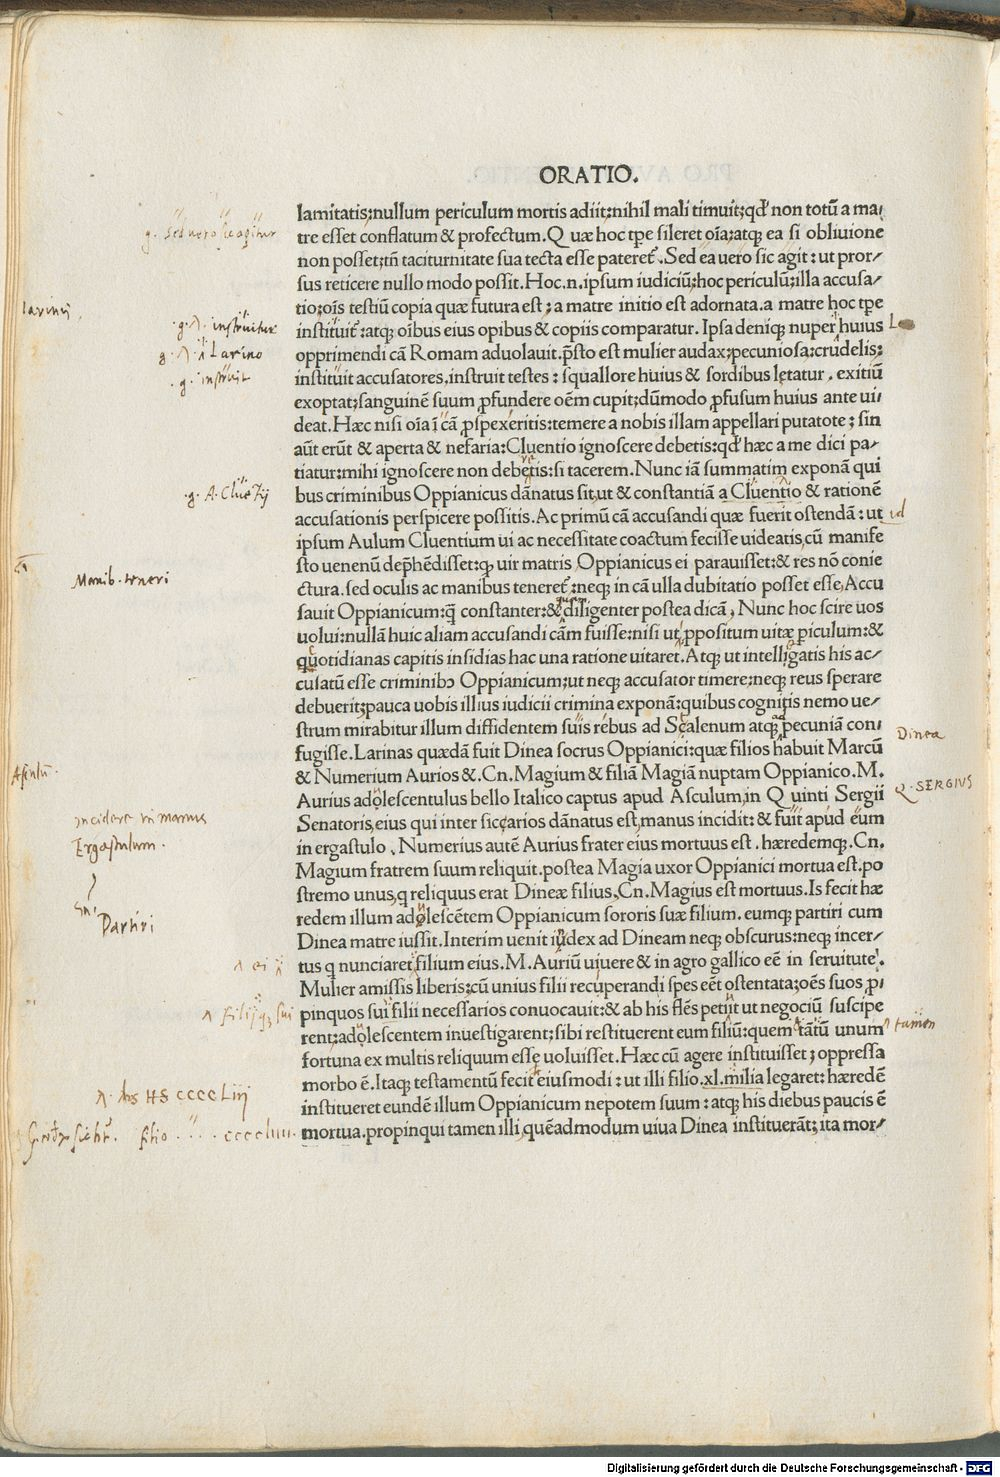 ORATIO.
lamitatis;nullum periculum mortis adiit;nihil mali timuit;qđ non totũ a ma/
tre esset conflatum & profectum.Q uæ hoc tp̃e sileret oĩa;atq; ea si obliuione
non posset;tñ taciturnitate sua tecta esse pateret᷑.Sed ea uero sic agit:ut pror/
sus reticere nullo modo possit.Hoc.n.ipsum iudiciũ;hoc periculũ;illa accusa/
tio;oĩs testiũ copia quæ futura est;a matre initio est adornata.a matre hoc tp̃e
instituit᷑:atq; oĩbus eius opibus & copiis comparatur. Ipsa deniq; nuper huius
opprimendi cã Romam aduolauit.p̃sto est mulier audax;pecuniosa;crudelis;
instituit accusatores,instruit testes:squallore huius & sordibus lętatur.exitiũ
exoptat;sanguinẽ suum ꝓfundere oẽm cupit;dũmodo ꝓfusum huius ante ui/
deat.Hæc nisi oĩa ĩ cã ꝑspexeritis:temere a nobis illam appellari putatote;sin
aũt erũt & aperta & nefaria:Cluentio ignoscere debetis:qđ hæc a me dici pa/
tiatur:mihi ignoscere non debetis:si tacerem.Nunc iã summatim exponã qui
bus criminibus Oppianicus dãnatus sit,ut & constantiã a Cluentio & rationẽ
accusationis perspicere possitis.Ac primũ cã accusandi quæ fuerit ostendã:ut
ipsum Aulum Cluentium ui ac necessitate coactum fecisse uideatis,cũ manife
sto uenenũ dep̃hẽdisset:q; uir matris,Oppianicus ei parauisset:& res nõ conie
ctura.sed oculis ac manibus teneret᷑:neq; in cã ulla dubitatio posset esse,Accu
sauit Oppianicum:q̃ constanter:& diligenter postea dicã,Nunc hoc scire uos
uolui:nullã huic aliam accusandi cãm fuisse:nisi ut ꝓpositum uitæ ꝑiculum:&
quotidianas capitis insidias hac una ratione uitaret.Atq; ut intelligatis his ac/
cusatũ esse criminibꝰ Oppianicum;ut neq; accusator timere;neq; reus sperare
debuerit;pauca uobis illius iudicii crimina exponã:quibus cognitis nemo ue/
strum mirabitur illum diffidentem suis rebus ad Scalenum atq; pecuniã con/
fugisse.Larinas quædã fuit Dinea socrus Oppianici:quæ filios habuit Marcũ
& Numerium Aurios &.Cn.Magium & filiã Magiã nuptam Oppianico.M.
Aurius adolescentulus bello Italico captus apud Asculum,in Q uinti Sergii
Senatoris,eius qui inter siccarios dãnatus est,manus incidit:& fuit apud eum
in ergastulo.Numerius autẽ Aurius frater eius mortuus est.hæredemq;.Cn.
Magium fratrem suum reliquit.postea Magia uxor Oppianici mortua est.po
stremo unus,q reliquus erat Dineæ filius,Cn.Magius est mortuus.Is fecit hæ
redem illum adolescẽtem Oppianicum sororis suæ filium.eumq; partiri cum
Dinea matre iussit.Interim uenit iudex ad Dineam neq; obscurus:neq; incer/
tus q nunciaret filium eius.M.Auriũ uiuere & in agro gallico eẽ in seruitute.
Mulier amissis liberis;cũ unius filii recuperandi spes eẽt ostentata;oẽs suos ꝓ
pinquos sui filii necessarios conuocauit:& ab his flẽs petiit ut negociũ suscipe
rent;adolescentem inuestigarent;sibi restituerent eum filiũ:quem tãtũ unum
fortuna ex multis reliquum esse uoluisset.Hæc cũ agere instituisset;oppressa
morbo ẽ.Itaq; testamentũ fecit eiusmodi:ut illi filio.xl.milia legaret:hæredẽ
institueret eundẽ illum Oppianicum nepotem suum:atq; his diebus paucis ẽ
mortua.propinqui tamen illi,quẽadmodum uiua Dinea instituerãt;ita mor/
g. Sed uero sic agitur
g. instruitur
g. Larino
g. instruit
Manib. teneri
id
Dinea
Q. SERGIUS
incidere in manus
Ergastulum.
Partiri
tamen
HS CCCCLiij
filio
Digitalisierung gefördert durch die Deutsche Forschungsgemeinschaft - DFG